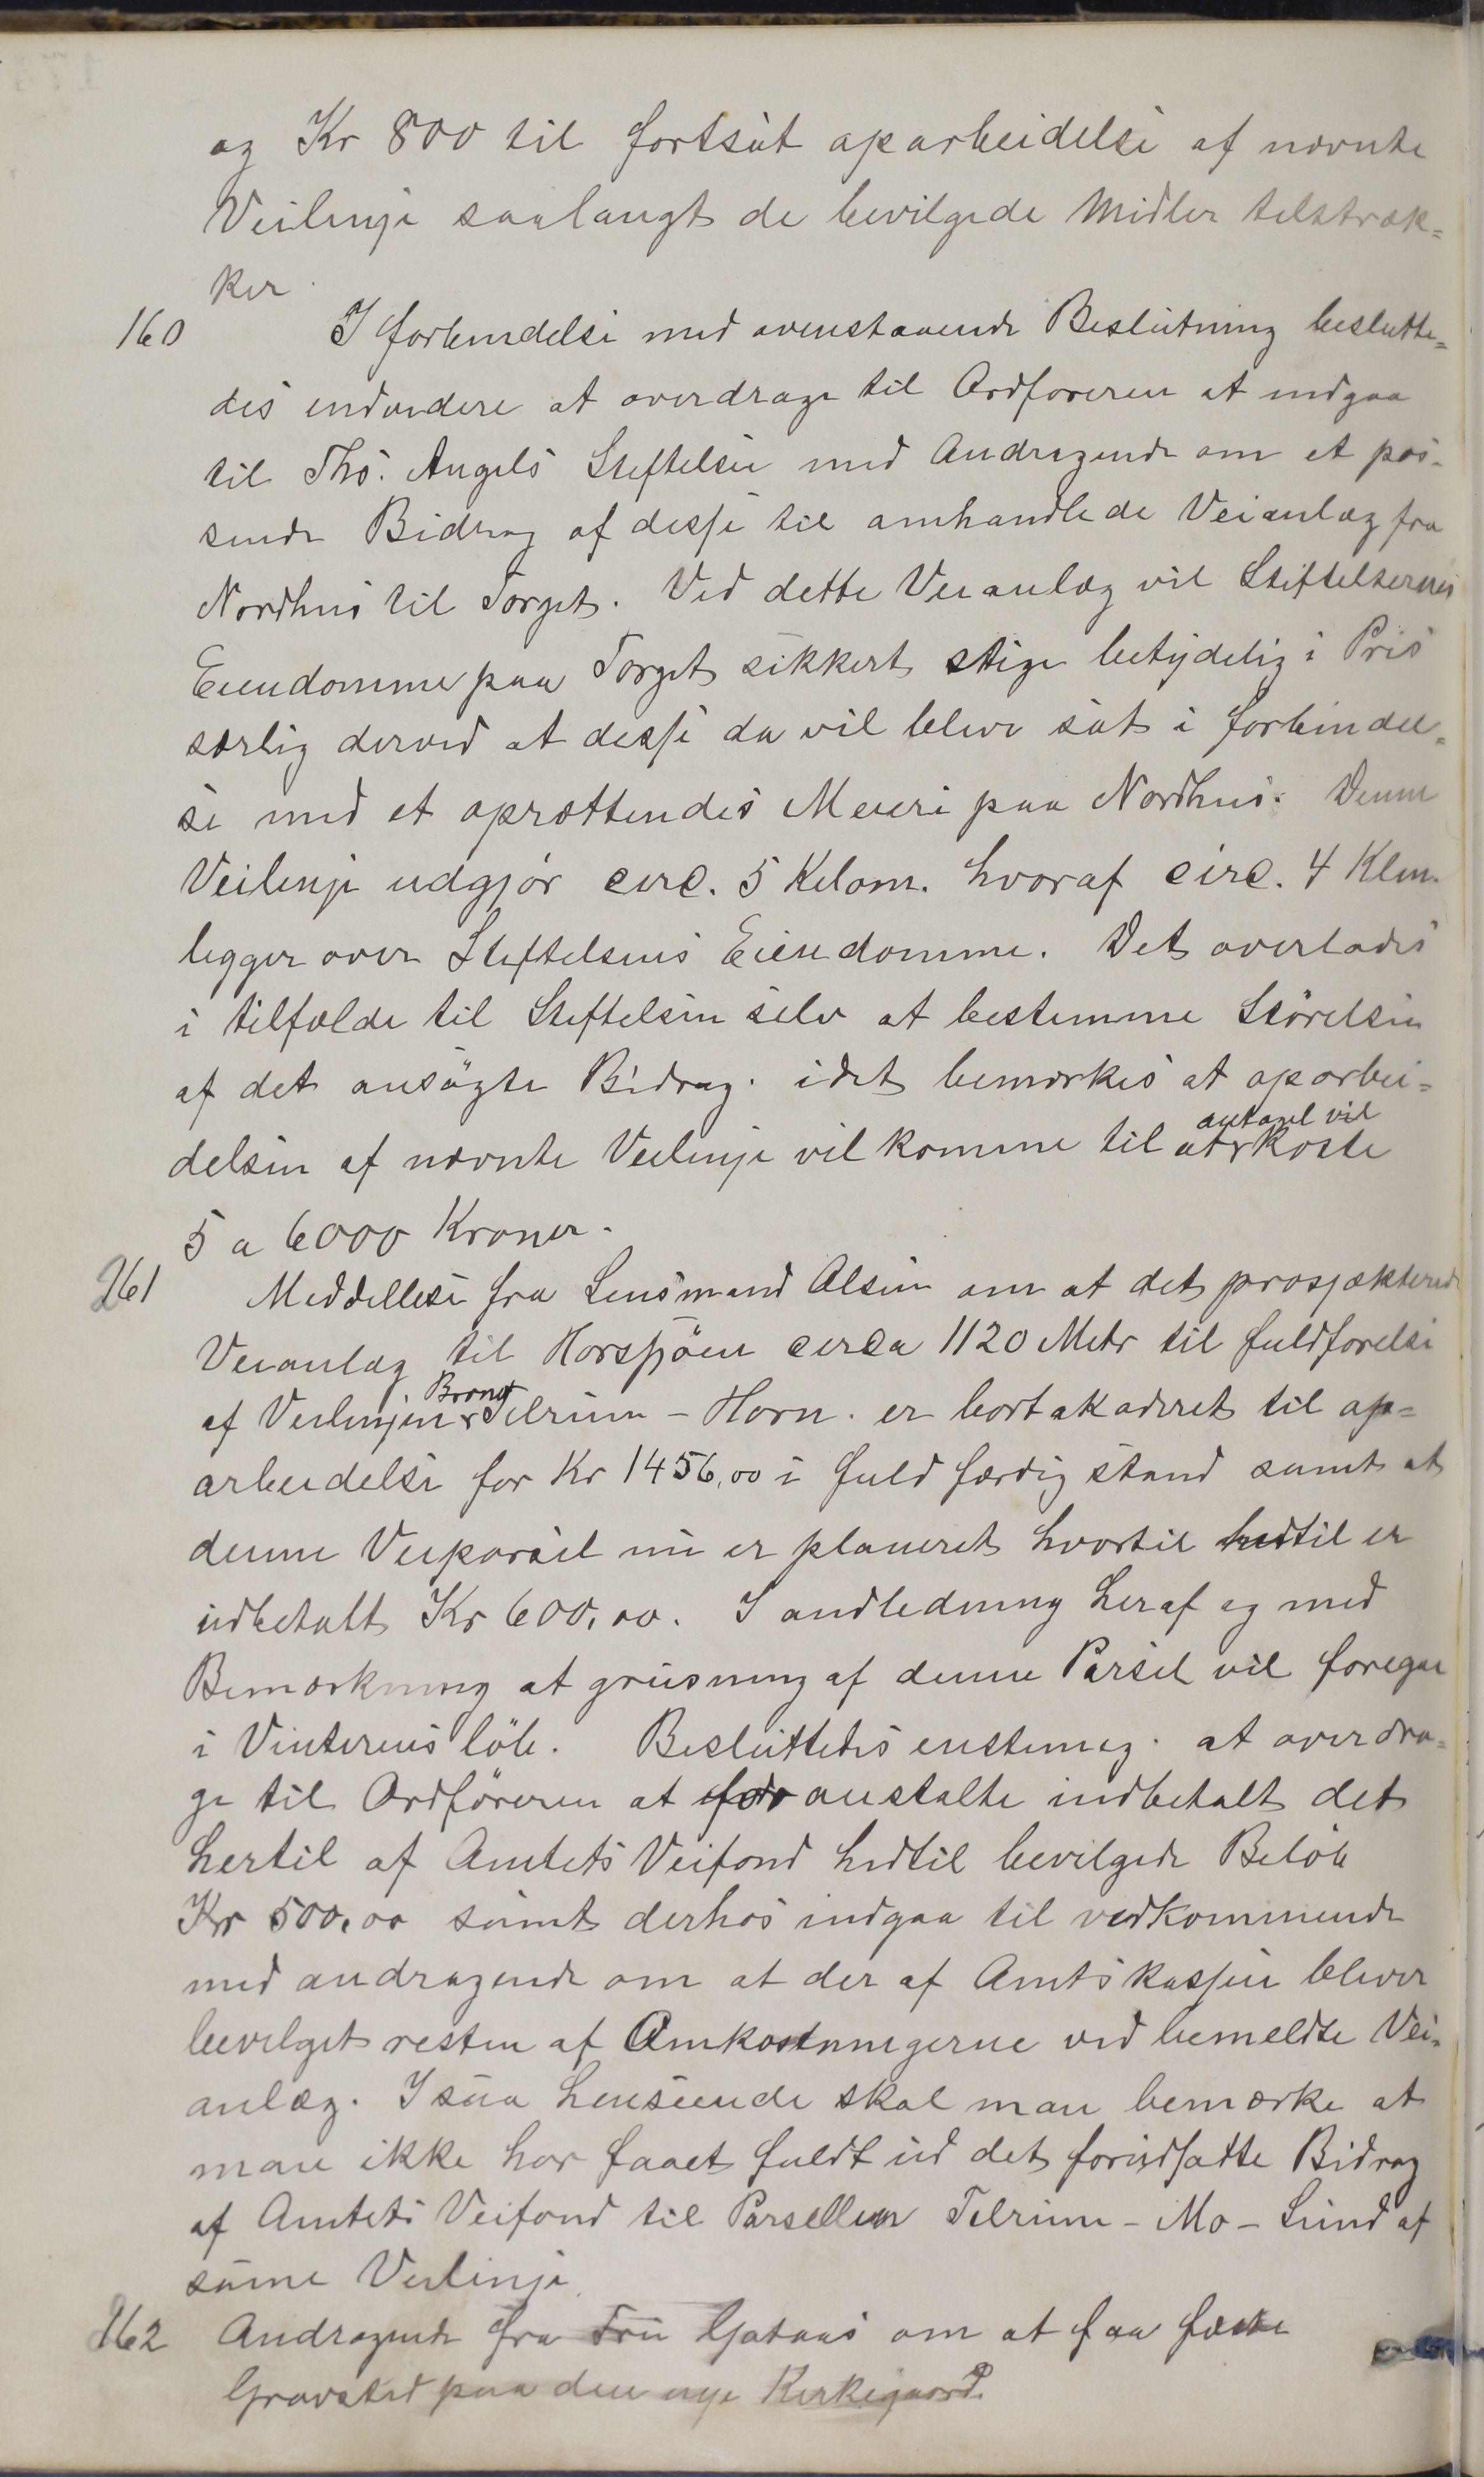 og Kr 800 til fortsat oparbeidelse af nævnte
Veilinje saalangt de bevilgede Midler tilstræk=
ker.
160 I forbindelse med ovenstaaende Beslutning beslutte=
des endvidere at overdrage til Ordføreren at indgaa
til Ths. Angels Stiftelser med Andragende om et pas-
sende Bidrag af disse til omhandlede Veianlæg fra
Nordhus til Torget. Ved dette Veianlæg vil Stiftelsernes
Eiendomme paa Torget sikkert stige betydelig i Pris
særlig derved at disse da vil blive sat i forbindel=
se med et oprættendes Meieri paa Nordhus. Denne
Veilinje udgjør circ. 5 Kilom. hvoraf circ. 4 Klm.
ligger over Stiftelsens Eiendomme. Det overlades
i tilfælde til Stiftelsen selv at bestemme Størelsen
af det ansøgte Bidrag. idet bemærkes at oparbei=
delsen af nævnte Veilinje vil komme til at koste
antagl vil
5 a 6000 Kroner.
161 Meddellese fra Lensmand Alsen om at det prosjækterede
Veianlæg til Horsjøen circa 1120 Metr til fuldførelse
af Veilinjen Telrum - Horn. er bortakorderet til op=
arbeidelse for Kr 1456,00 i fuld færdig stand samt at
denne Veiparsel nu er planeret hvortil hidtil er
udbetalt Kr 600,00. I andledning heraf og med
Bemærkning at grusning af denne Parsel vil foregaa
i Vinterens løb. Besluttedes enstemig. at overdra=
ge til Ordføreren at foranstalte indbetalt det
hertil af Amtets Veifond hidtil bevilgede Beløb
Kr 500,00 samt derhos indgaa til vedkommende
med andragende om at der af Amtskassen bliver
bevilget resten af Omkostningerne ved bemeldte Vei=
anlæg. I saa henseende skal man bemærke at
man ikke har faaet fuldt ud det forudsatte Bidrag
af Amtets Veifond til Parsellen Telrum - Mo - Lund af
same Veilinje.
162 Andragende fra Fru Gataas om at faa fæste
Gravsted paa den nye Kirkegaard.